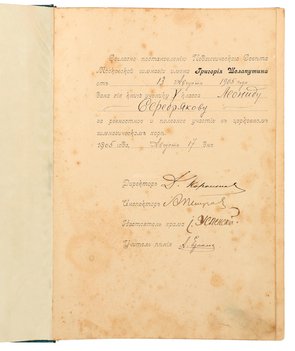 Согласно постановленію Педагогическаго Совѣта
Московской гимназіи имени Григорія Шелапутина
отъ 13 Августа 1905 года
дана сія книга ученику V класса Леониду
Серебрякову
за ревностное и полезное участіе въ церковномъ
гимназическомъ хорѣ.
1905 года, Августа 17 дня.
Директоръ
Инспекторъ
Настоятель храма
Учитель пѣнія